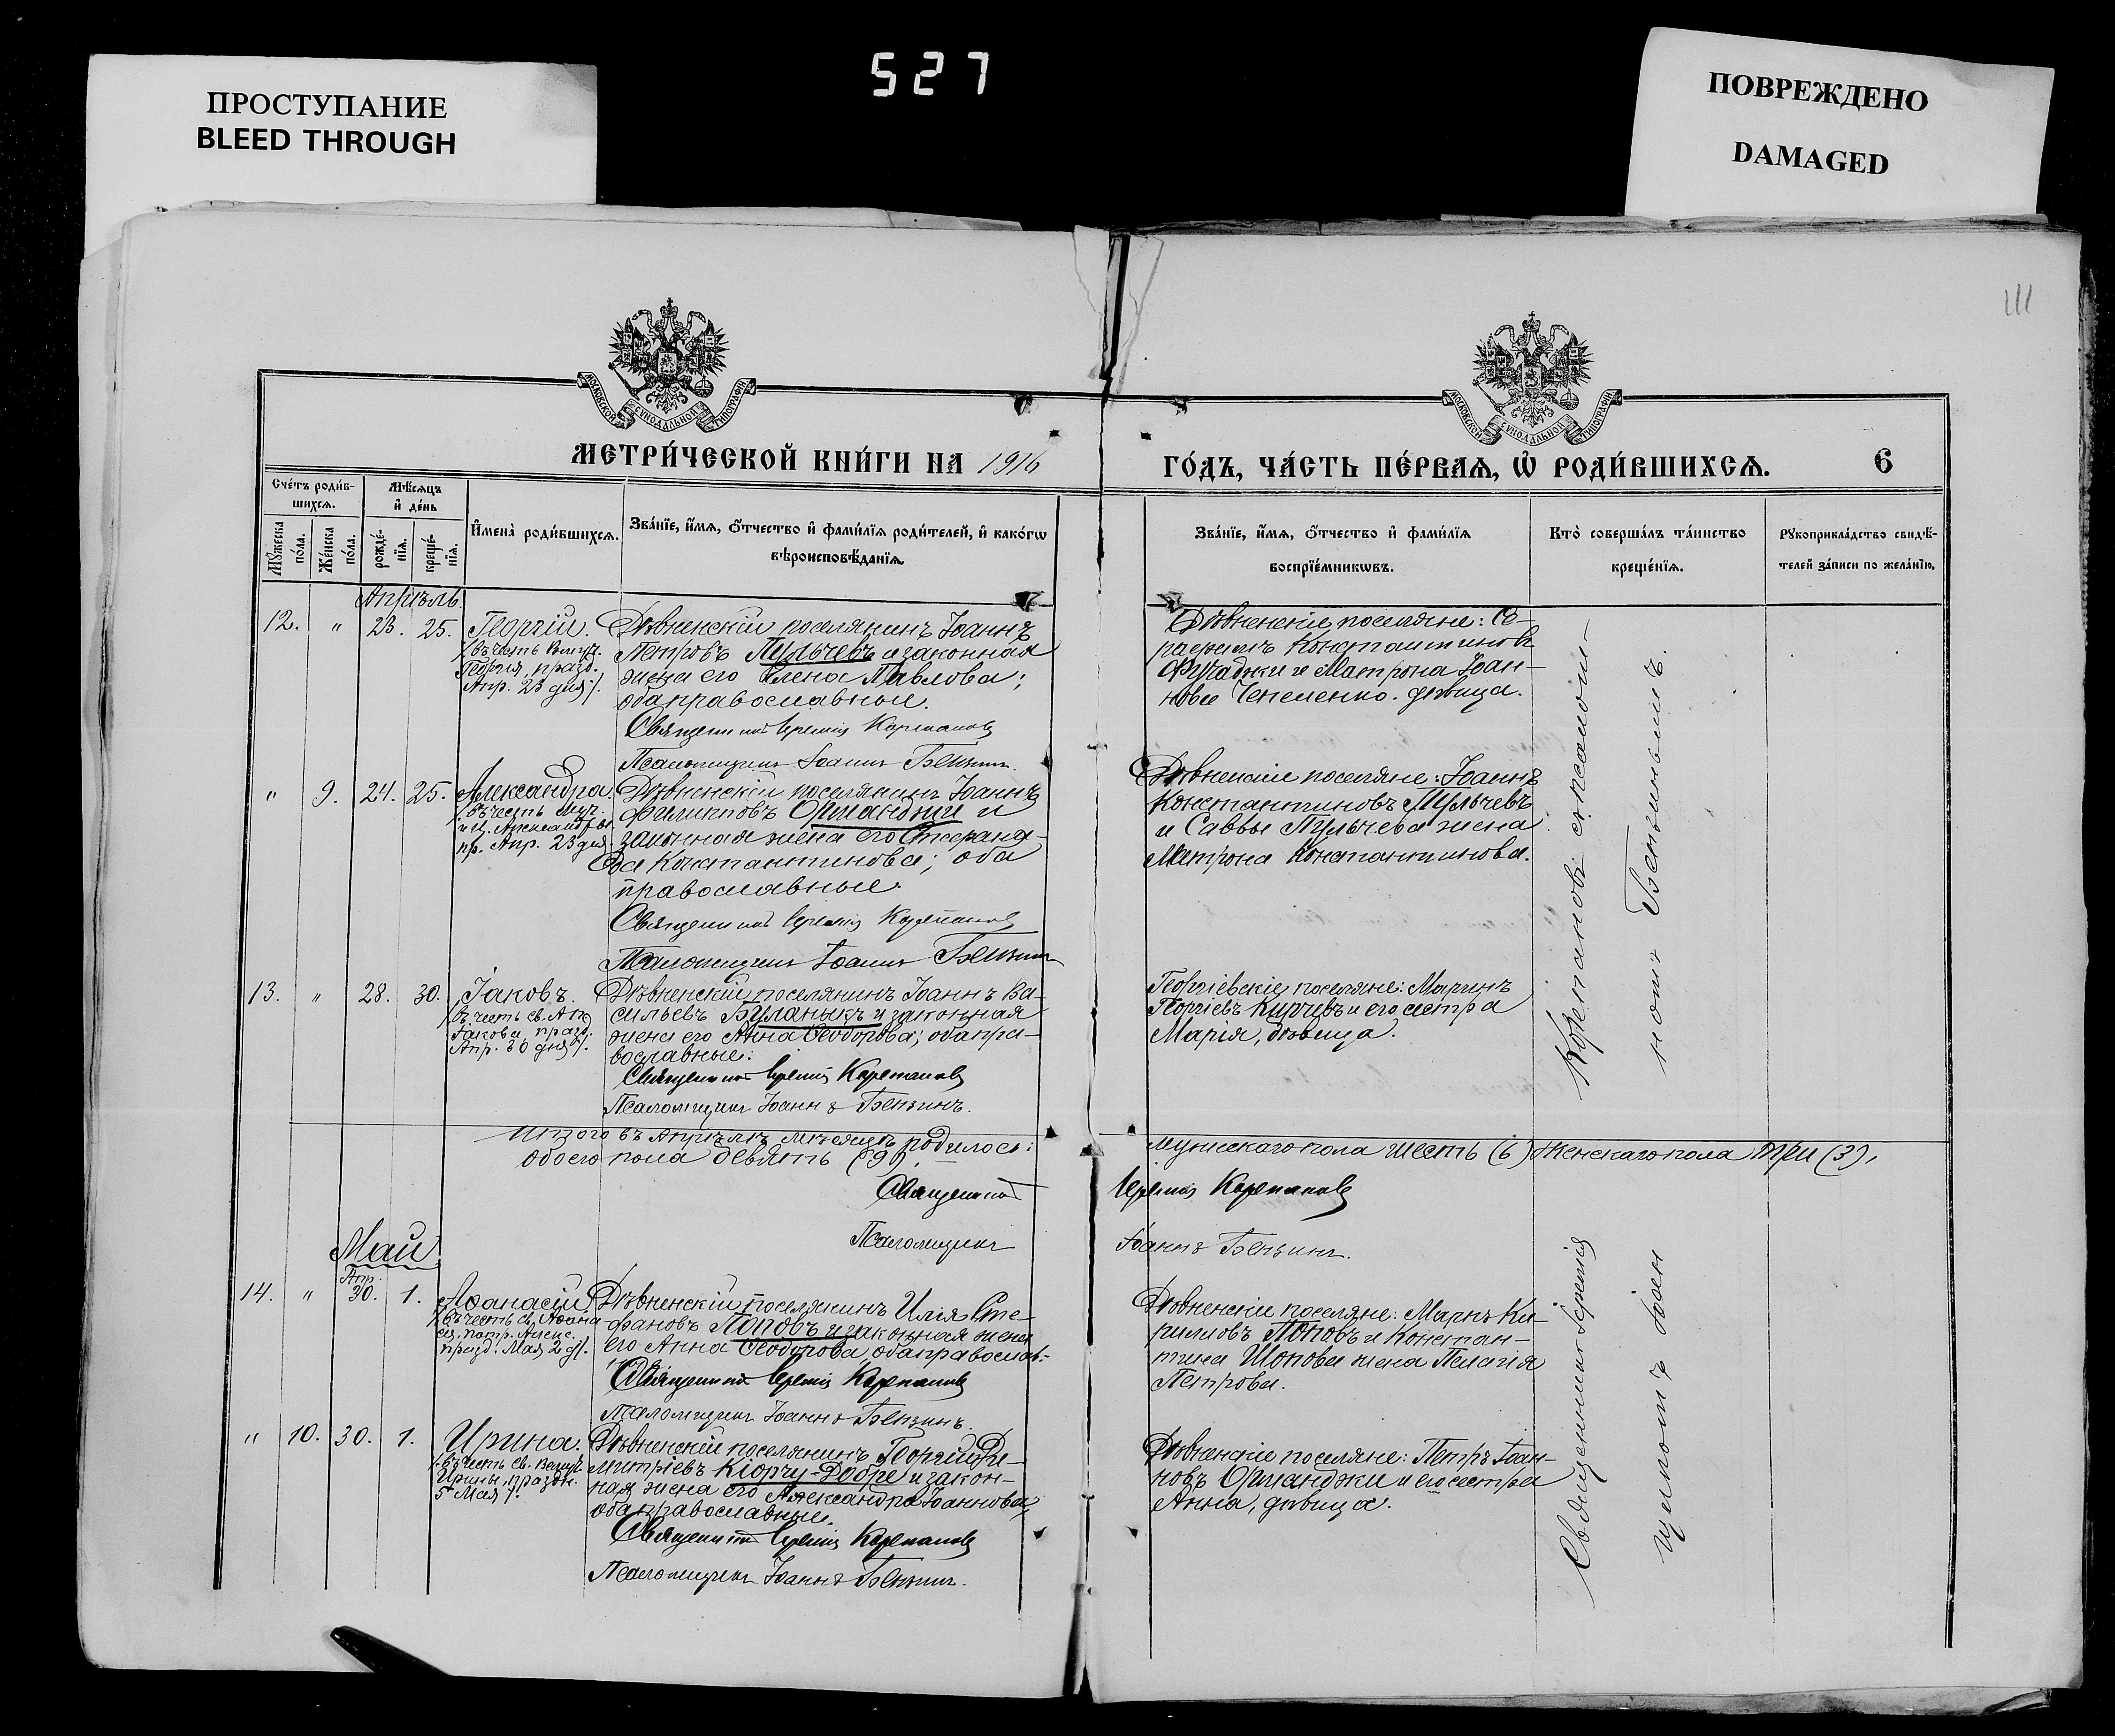 527
ПРОСТУПАНИЕ
BLEED THROUGH
ПОВРЕЖДЕНО
DAMAGED
111
МОСКОВСКОЙ СѴНОДАЛЬНОЙ ТИПОГРАФІИ
МОСКОВСКОЙ СѴНОДАЛЬНОЙ ТИПОГРАФІИ
МЕТРИ́ЧЕСКОЙ КНИ́ГИ НА 1916
ГО́ДЪ, ЧА́СТЬ ПЕ́РВАѦ, Ѡ҆ РОДИ́ВШИХСѦ. 6
Сче́тъ роди́в-
шихсѧ.
Мꙋ́жеска по́ла.
Же́нска по́ла.
Мѣ́сѧцъ
и҆ де́нь
рожде́-
нїѧ.
креще́-
нїѧ.
И҆мена̀ роди́вшихсѧ.
Зва́нїе, и҆́мѧ, ѻ҆́тчество и҆ фами́лїѧ роди́телей, и҆ како́гѡ
вѣроисповѣ́данїѧ.
Зва́нїе, и҆́мѧ, ѻ҆́тчество и҆ фами́лїѧ
воспрїе́мникѡвъ.
Кто̀ соверша́лъ та́инство
креще́нїѧ.
Рꙋкоприкла́дство свидѣ́-
телей за́писи по жела́нїю.
Апрѣль
12. " 23. 25. Георгій.
въ честь Влмуч.
Георгія, празд.
Апр. 23 дня/.
Дѣвненскій поселянинъ Іоаннъ
Петровъ Пульчевъ и законная
жена его Елена Павлова;
оба православные.
Священникъ Іеремія Карепановъ
Псаломщикъ Іоаннъ Бензинъ.
Дѣвненскіе поселяне: Се-
рафимъ Константиновъ
и Матрона Іоан-
нова дѣвица.
" 9. 24. 25. Александра
въ честь Муч.
и Ц. Александры
пр. Апр. 23 дня.
Дѣвненскій поселянинъ Іоаннъ
Филипповъ Орманджи и
законная жена его Стефани-
да Константинова; оба
православные.
Священникъ Іеремія Карепановъ
Псаломщикъ Іоаннъ Бензинъ
Дѣвненскіе поселяне: Іоаннъ
Константиновъ Пульчевъ
и Саввы Пульчева жена
Матрона Константинова.
13. " 28. 30. Іаковъ.
въ честь св. Ап.
Іакова, празд.
Апр. 30 дня/.
Дѣвненскій поселянинъ Іоаннъ Ва-
сильевъ Буланыкъ и законная
жена его Анна Ѳеодорова; оба пра-
вославные.
Священникъ Іеремія Карепановъ
Псаломщикъ Іоаннъ Бензинъ.
Георгіевскіе поселяне: Мартинъ
Георгіевъ Кирчевъ и его сестра
Марія, дѣвица.
Итого въ Апрѣлѣ мѣсяцѣ родилось:
мужескаго пола шесть (6) женскаго пола три (3),
обоего пола девять (9).
Священникъ Іеремія Карепановъ
Псаломщикъ Іоаннъ Бензинъ.
Май
14. " Апр. 30. 1. Аѳанасій.
въ честь св. Аѳана-
сія, патр. Алекс.
празд. Мая 2 д/.
Дѣвненскій поселянинъ Илія Сте-
фановъ Поповъ и законная жена
его Анна Ѳеодорова, оба православ.
Священникъ Іеремія Карепановъ
Псаломщикъ Іоаннъ Бензинъ.
Дѣвненскіе поселяне: Маркъ Ки-
рилловъ Поповъ и Констан-
тина Шопова жена Пелагія
Петрова.
" 10. 30. 1. Ирина.
въ честь св. Велмуч.
Ирины, праздн.
5 Мая/.
Дѣвненскій поселянинъ Георгій Ди-
митріевъ Кіорчу-Добре и закон-
ная жена его Александра Іоаннова,
оба православные.
Священникъ Іеремія Карепановъ
Псаломщикъ Іоаннъ Бензинъ.
Дѣвненскіе поселяне: Петръ Іоан-
новъ Орманджи и его сестра
Анна, дѣвица.
Священникъ Іеремія Карепановъ съ псалом-
щикомъ Іоанномъ Бензинымъ.